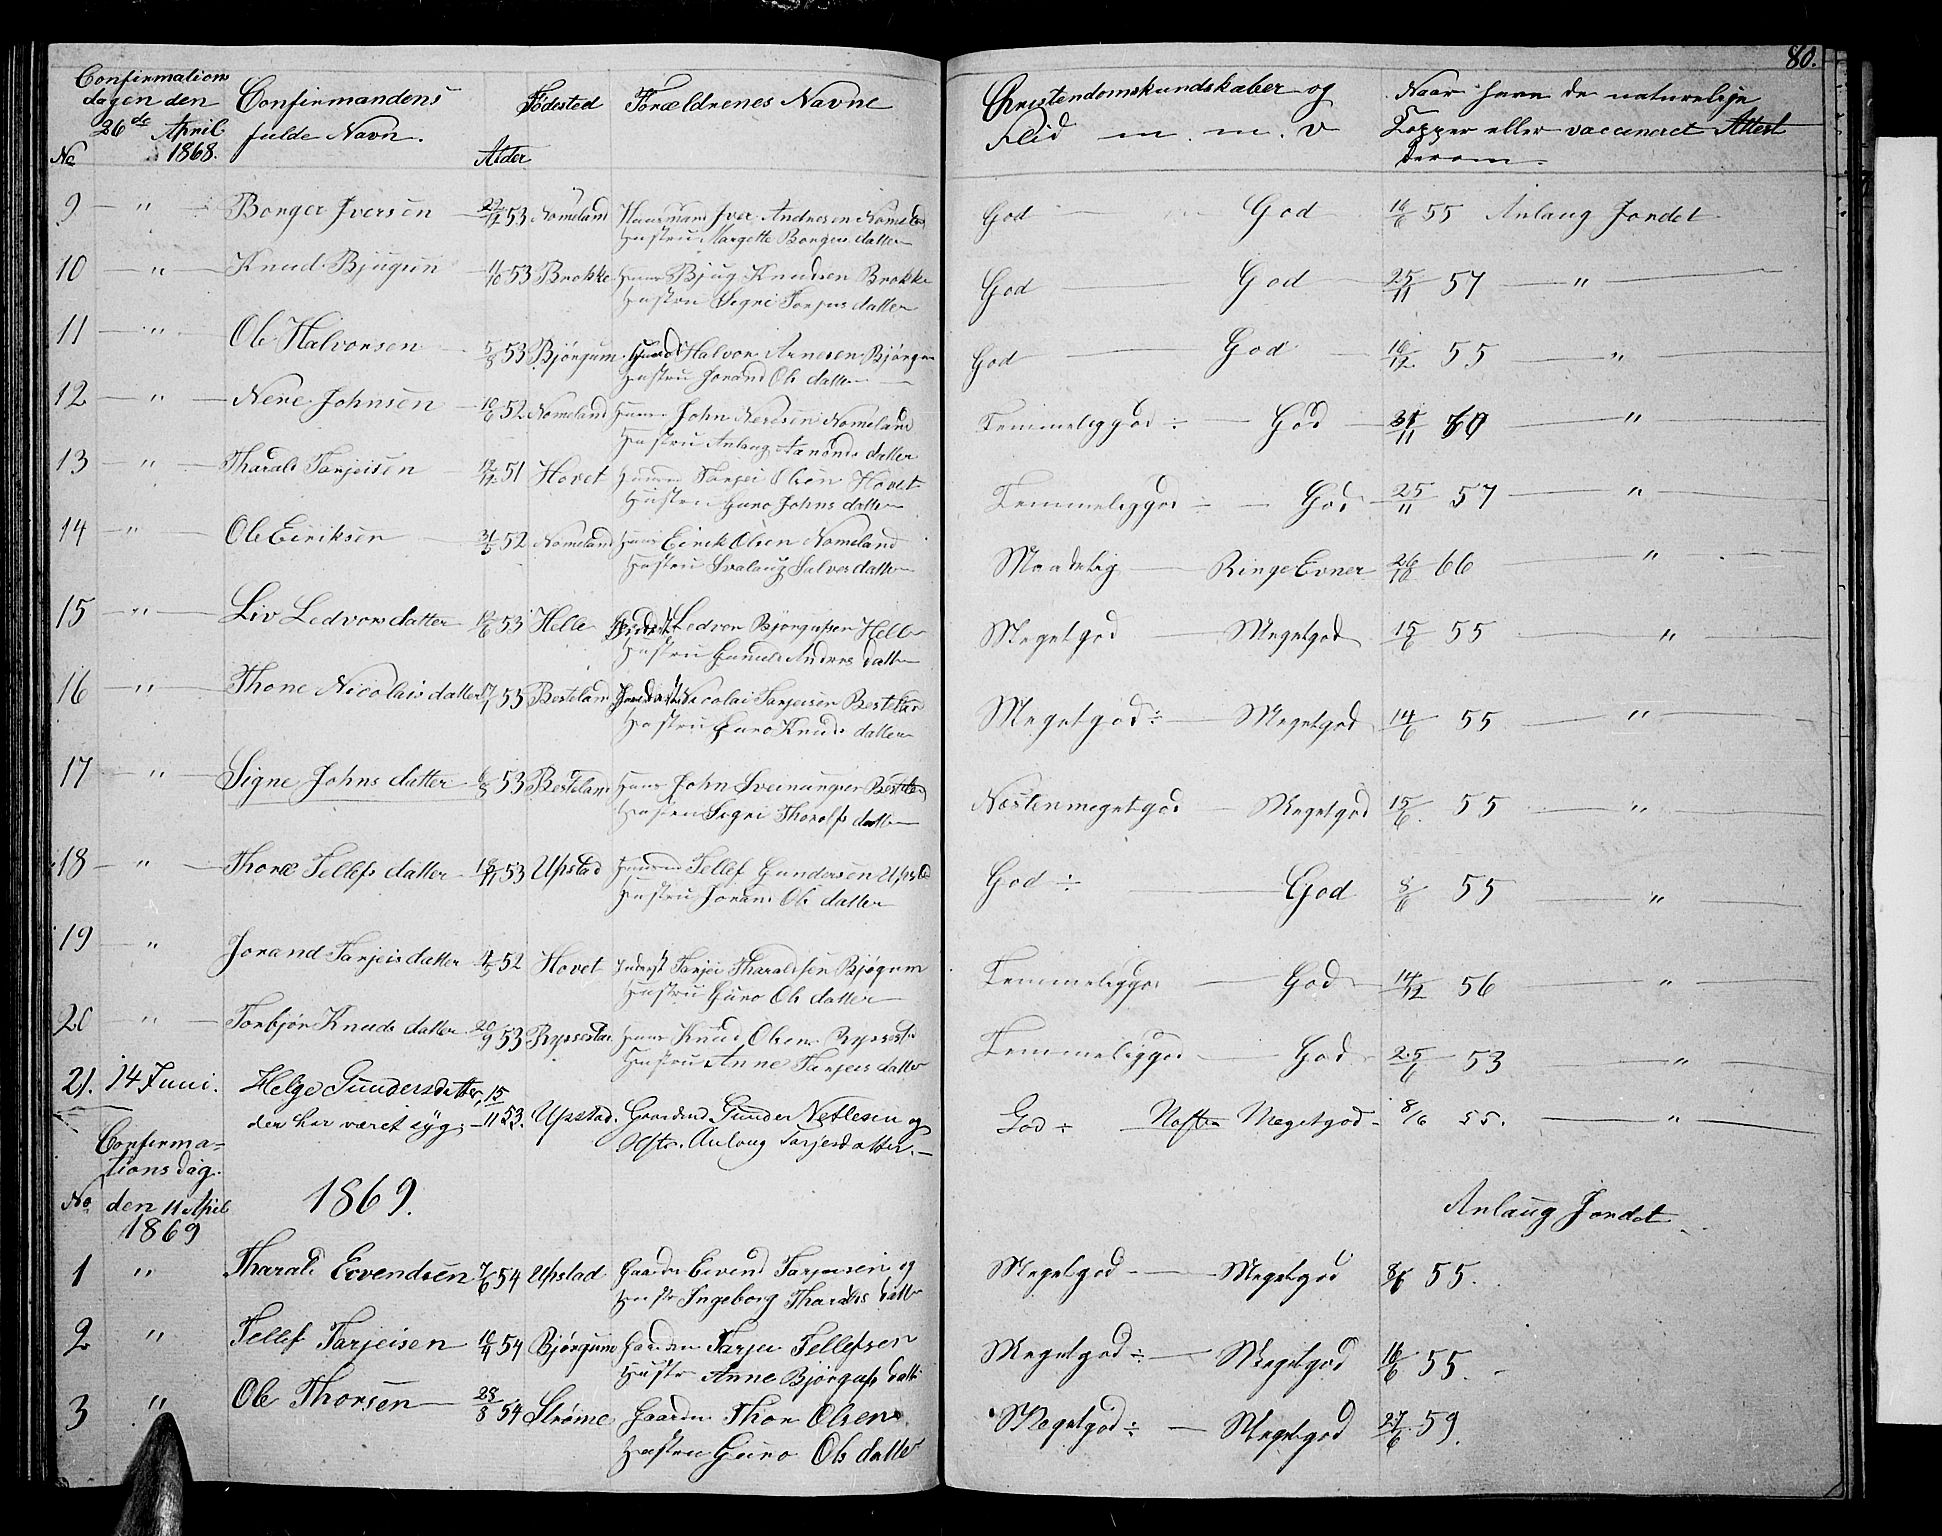 80.
Confirmations
dagen den
26de April
1868.
No
Confirmandens
fulde Navn.
Alder
Födested
Forældrenes Navne
Christendomskundskaber og
Flid m. m. v
Naar have de naturelige
Kopper eller vaccineret Attest
derom.
9 — " — Bonger Iversen — 53 Nomeland Huusmand Iver Andresen
Hustru Margette Bongers datter
God — God 55 Anlaug Jordet
10 — " — Knud Bjugsen 53 Brokke Bjug Knudsen Brokke
Hustru Sigri Torjus datter
God — God — 25/11 57 — " —
11 — " — Ole Halvorsen 53 Bjørgum Halvor Arnesen Bjørgum
Hustru Jorand Ols datter —
God — God 16/12 55 — " —
12 — " — Nere Johnsen — 52 Nomeland John Neresen Nomeland
Hustru Anlaug Aanonds datter
Temmeliggod ÷ — God — — " —
13 — " — Tharald Tarjeisen 51 Hovet Tarjei Olsen Hovet
Hustru Guro Johns datter
Temmeliggod ÷ — God — 25/11 57 — " —
14 — " — Ole Eiriksen 52 Nomeland Eirik Olsen Nomeland
Hustru Svalaug Salves datter
Maadelig — Ringe Evner 26/10 66 — " —
15 — " — Liv Ledvors datter 53 Helle Ledvor Bjørgufsen Helle
Hustru Gunild Anders datter
Megetgod — Megetgod 15/6 55 — " —
16 — " — Thone Nicolais datter 53 Besteland Nicolai Tarjeisen Besteland
Hustru Guro Knuds datter
Megetgod ÷ — Megetgod 14/6 55 — " —
17 — " — Signe Johns datter 53 Besteland John Sveinungsen Besteland
Hustru Sigri Thorolfs datter
Næstenmegetgod — Megetgod 15/6. 55 — " —
18 — " — Thone Tellefs datter 53 Upstad Tellef Gundersen Upstad
Hustru Jorand Ols datter
God ÷ — God 8/6 55 — " —
19 " Jorand Tarjeis datter 52 Hovet Tarjei Tharaldsen Bjøgum
Hustru Guro Ols datter —
Temmeliggod — God — 14/12 56 — " —
20 — " — Torbjør Knuds datter 20/9 53 Ryssestad Knud Olsen Ryssestad
Hustru Anne Tarjeis datter
Temmeliggod — God — 25/6 53 — " —
21. 14 Juni. Helge Gundersdatter, 15/11 53. Upstad. Gaardmd Gunder Netlesen og
der har været syg — Hstr. Anlaug Tarjeisdatter. —
God ÷ Næsten Megetgod — 8/6 55. — " —
Confirma-
tions dag
No den 11 April
1869
1869.
Anlaug Jordet
1 " Tharald Eevendsen 7/6 54 Upstad Gaardm Eevend Tarjeisen og
Hustr Ingeborg Tharalds datter
Megetgod — Megetgod 8/6 55.
2 " Tellef Tarjeisen 54 Bjørgum Gaardm Tarjei Tellefsen
Hustr Anne Bjørgufs datt
Megetgod ÷ — Megetgod 16/6 55. —
3 " Ole Thorsen — 28/8 54 Strøme Gaardm Thor Olsen
Hustru Guro Ols datter
Megetgod ÷ — Megetgod 27/6 59.